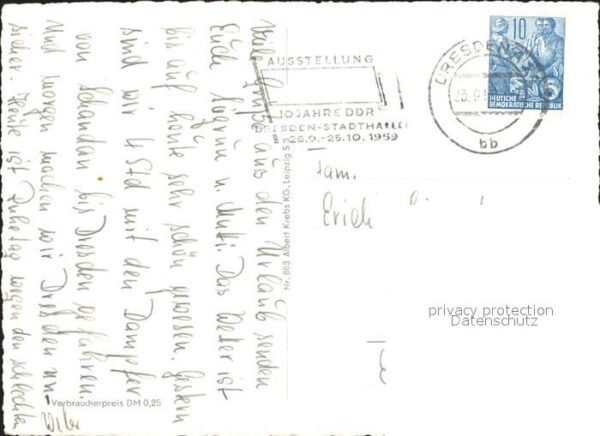 Viele Grüße aus den Urlaub senden
Euch Sigrun u. Mutti. Das Wetter ist
bis auf heute sehr schön gewesen. Gestern
sind wir 4 Std mit den Dampfer
von Schandau bis Dresden gefahren.
Und morgen machen wir Dresden un-
sicher. Heute ist Ruhetag wegen den schlechten
Wetter
Verbraucherpreis DM 0,25
Nr. 863 Albert Krebs KG, Leipzig S 3
AUSSTELLUNG
10 JAHRE DDR
DRESDEN-STADTHALLE
26.9.-25.10.1959
DRESDEN
bb
10
DEUTSCHE
DEMOKRATISCHE REPUBLIK
5
Fam.
Erich
privacy protection
Datenschutz